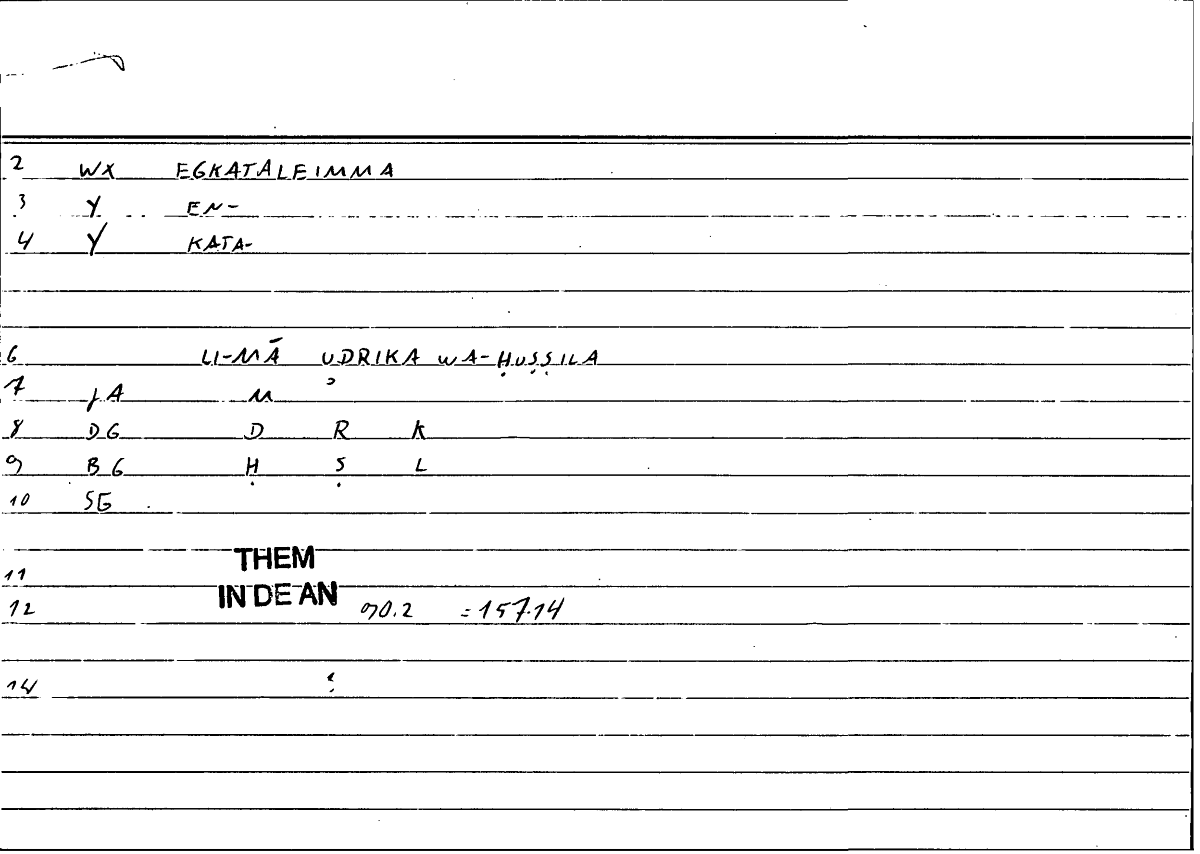 2 WX EGKATALEIMMA
3 Y EN-
4 Y KATA-
6 LI-MĀ UDRIKA WA-ḤUṢṢILA
7 JA M ʾ
8 DG D R K
9 BG Ḥ Ṣ L
10 SG
11 THEM
12 IN DE AN 90.2 =157.14
14 ʿ